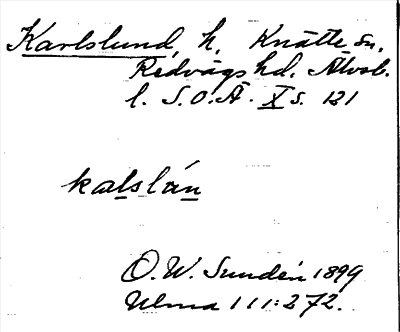 Karlslund, h. Knätte sn,
Redvägs hd. Älvsb.
l. S.O.Ä. X s. 121
kalslán
O.W. Sundén 1899
Ulma 111:272.